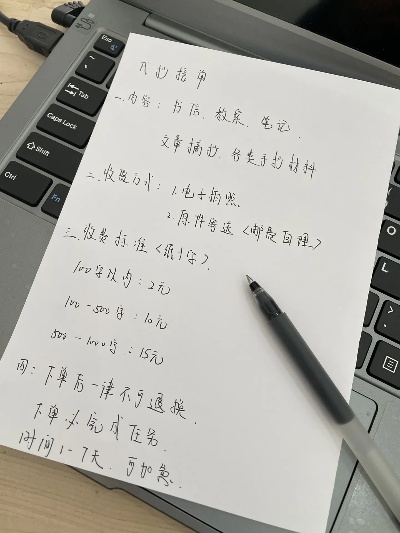 代抄接单
一、内容：书信、教案、笔记、
文章摘抄、各类手抄材料
二、收货方式：1.电子拍照
2.原件寄送（邮费自理）
三、收费标准（纸+字）
100字以内：2元
100-500字：10元
500-1000字：15元
下单后一律不予退换
下单必完成任务
时间1-7天，可加急
Esc
Tab
Caps Lock
Shift
Ctrl
Fn
O
L